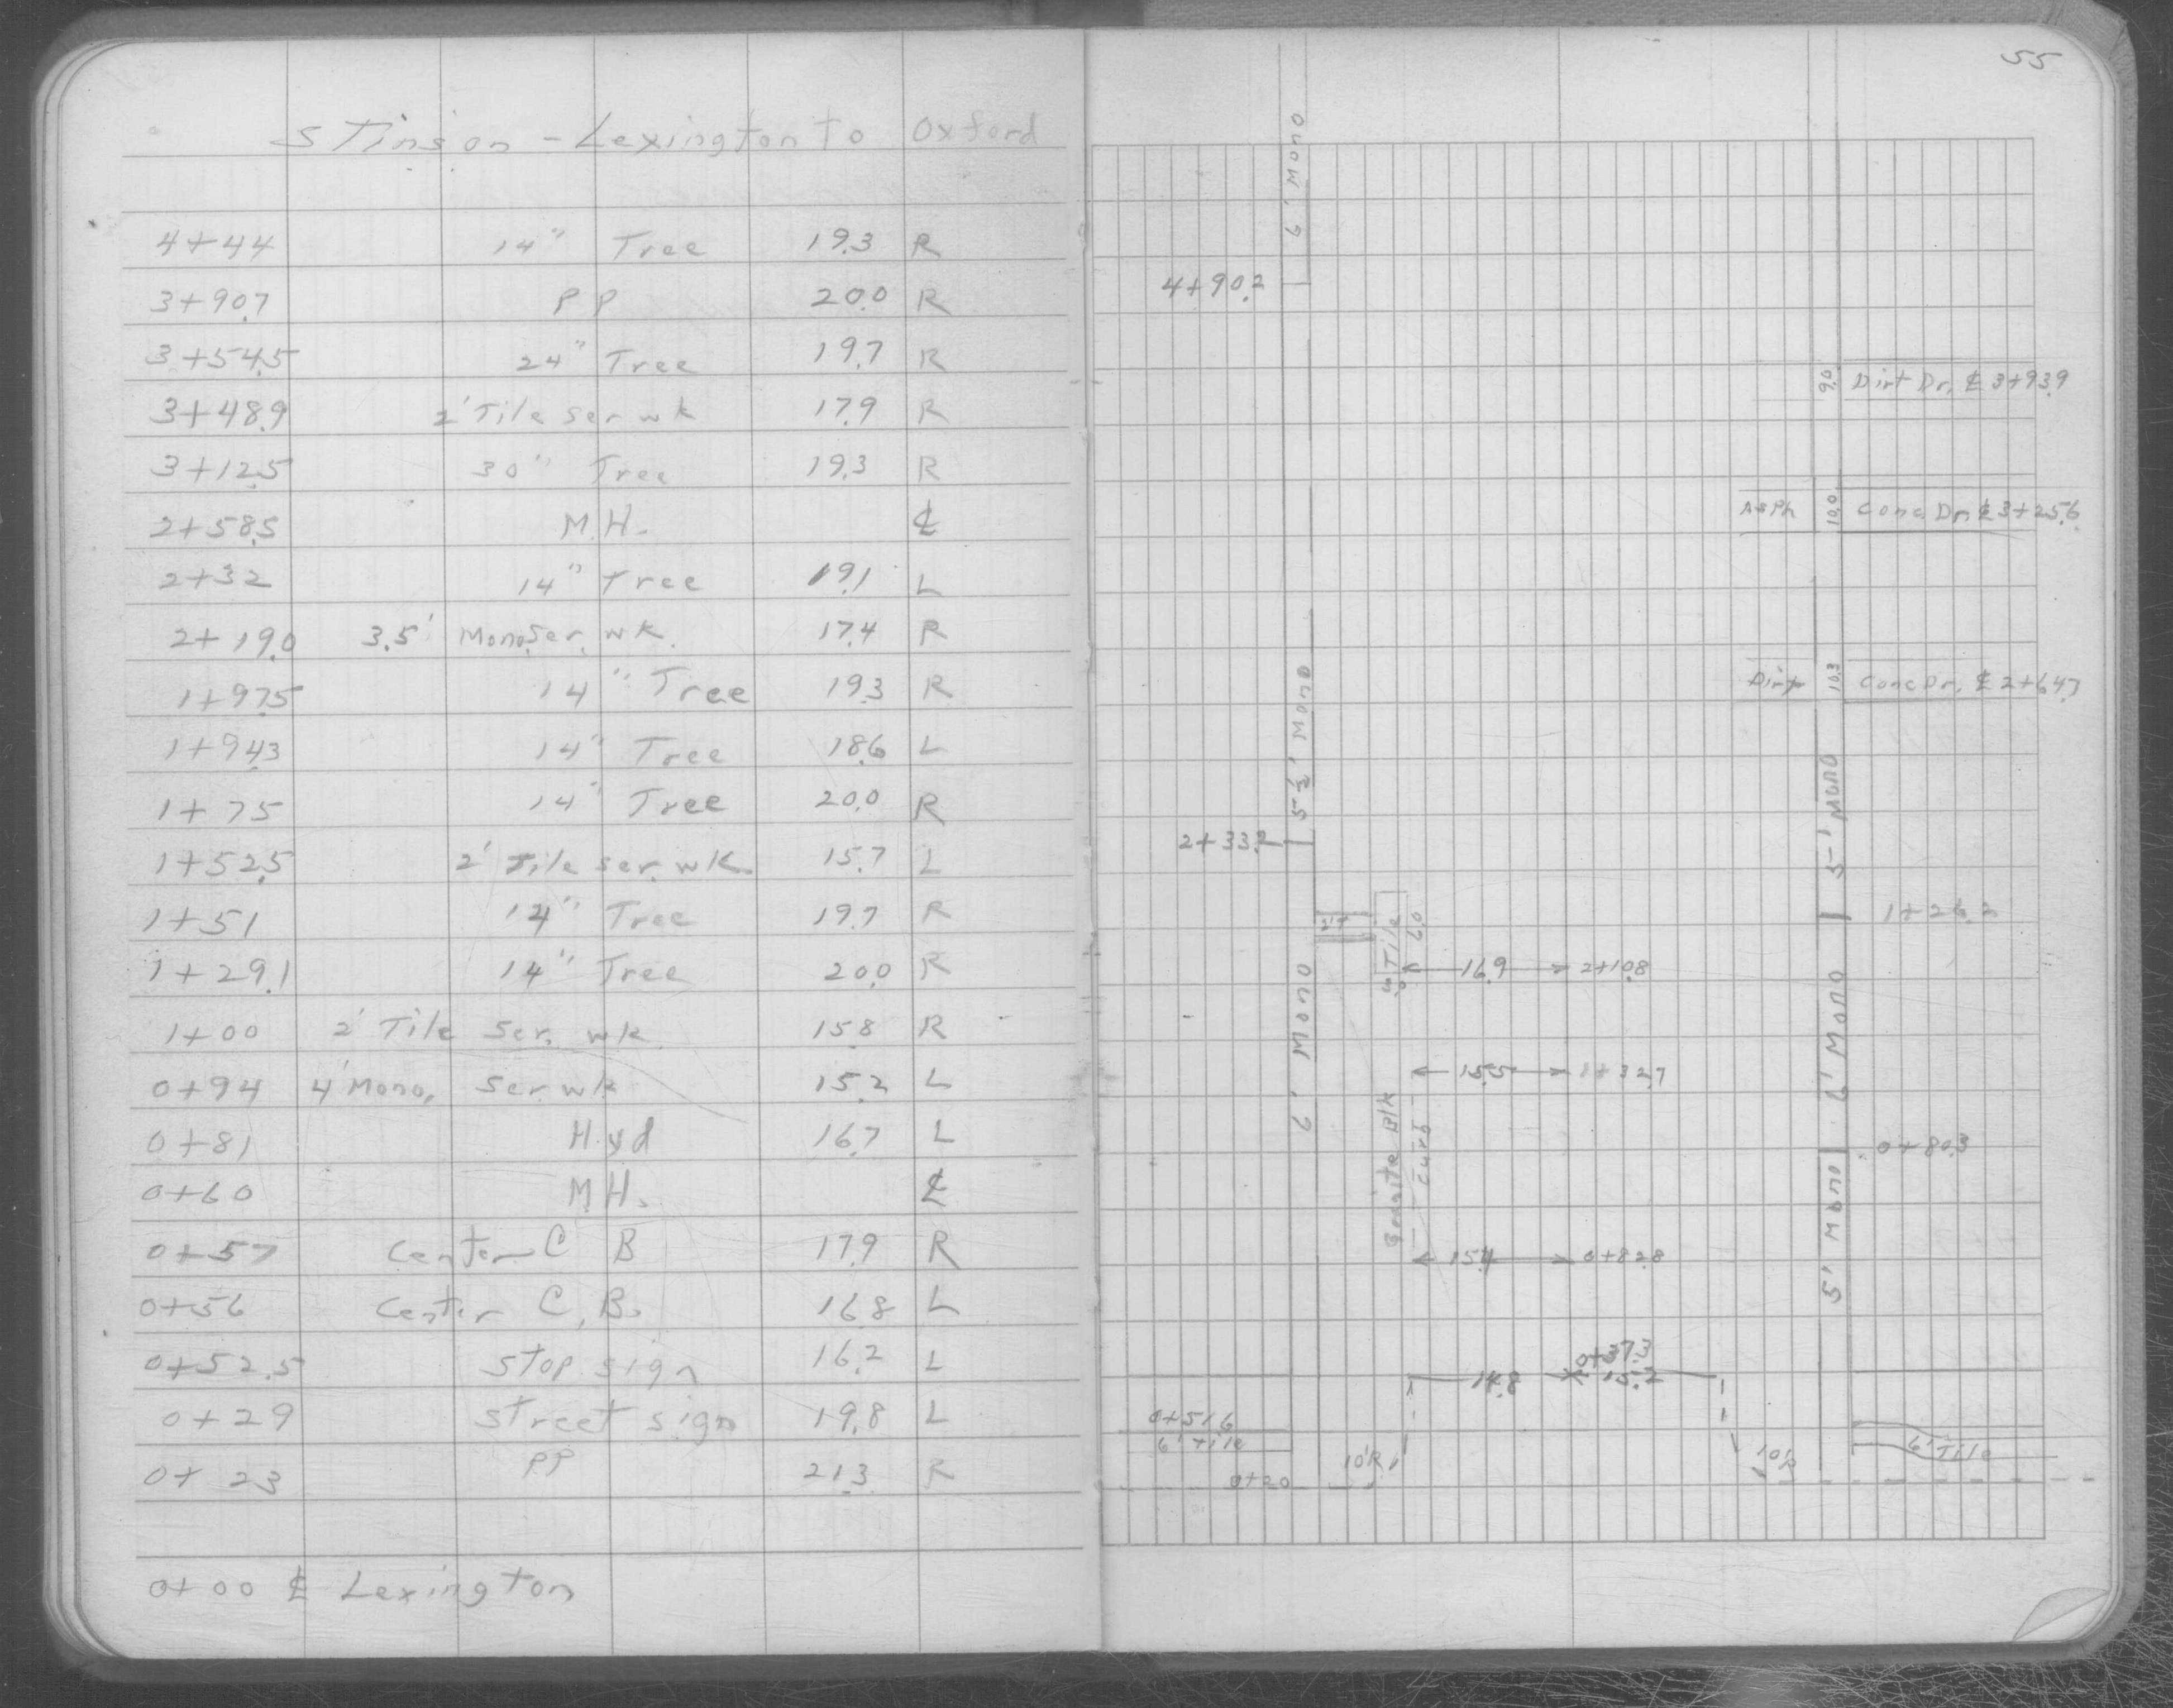 Stinson - Lexington to Oxford
4+44 14" Tree 19.3 R
3+90.7 PP 20.0 R
3+54.5 24" Tree 19.7 R
3+48.9 2' Tile Ser wk 17.9 R
3+12.5 30" Tree 19.3 R
2+58.5 M.H. ℄
2+32 14" Tree 19.1 L
2+19.0 3.5' Mono Ser. wk. 17.4 R
1+97.5 14" Tree 19.3 R
1+94.3 14" Tree 18.6 L
1+75 14" Tree 20.0 R
1+52.5 2' Tile ser. wk. 15.7 L
1+51 14" Tree 19.7 R
1+29.1 14" Tree 20.0 R
1+00 2' Tile Ser. wk. 15.8 R
0+94 4' Mono. Ser. wk 15.2 L
0+81 Hyd 16.7 L
0+60 M.H. ℄
0+57 Center C B 17.9 R
0+56 Center C.B. 16.8 L
0+52.5 Stop sign 16.2 L
0+29 Street sign 19.8 L
0+23 PP 21.3 R
0+00 ℄ Lexington
55
6' Mono
4+90.2
9.0 Dirt Dr. ℄ 3+93.9
Asph 10.0 Conc. Dr. ℄ 3+25.6
Dirt 10.3 Conc Dr. ℄ 2+64.7
5½' Mono
5' Mono
2+33.2
1+26.2
Tile 6.0
16.9 2+10.8
6' Mono
6' Mono
15.5 1+32.7
Granite Blk
Curb
0+80.3
15.4 0+82.8
5' Mono
0+37.3
14.8 15.2
0+51.6
6' tile
10'R
0+20
10'R
6' Tile